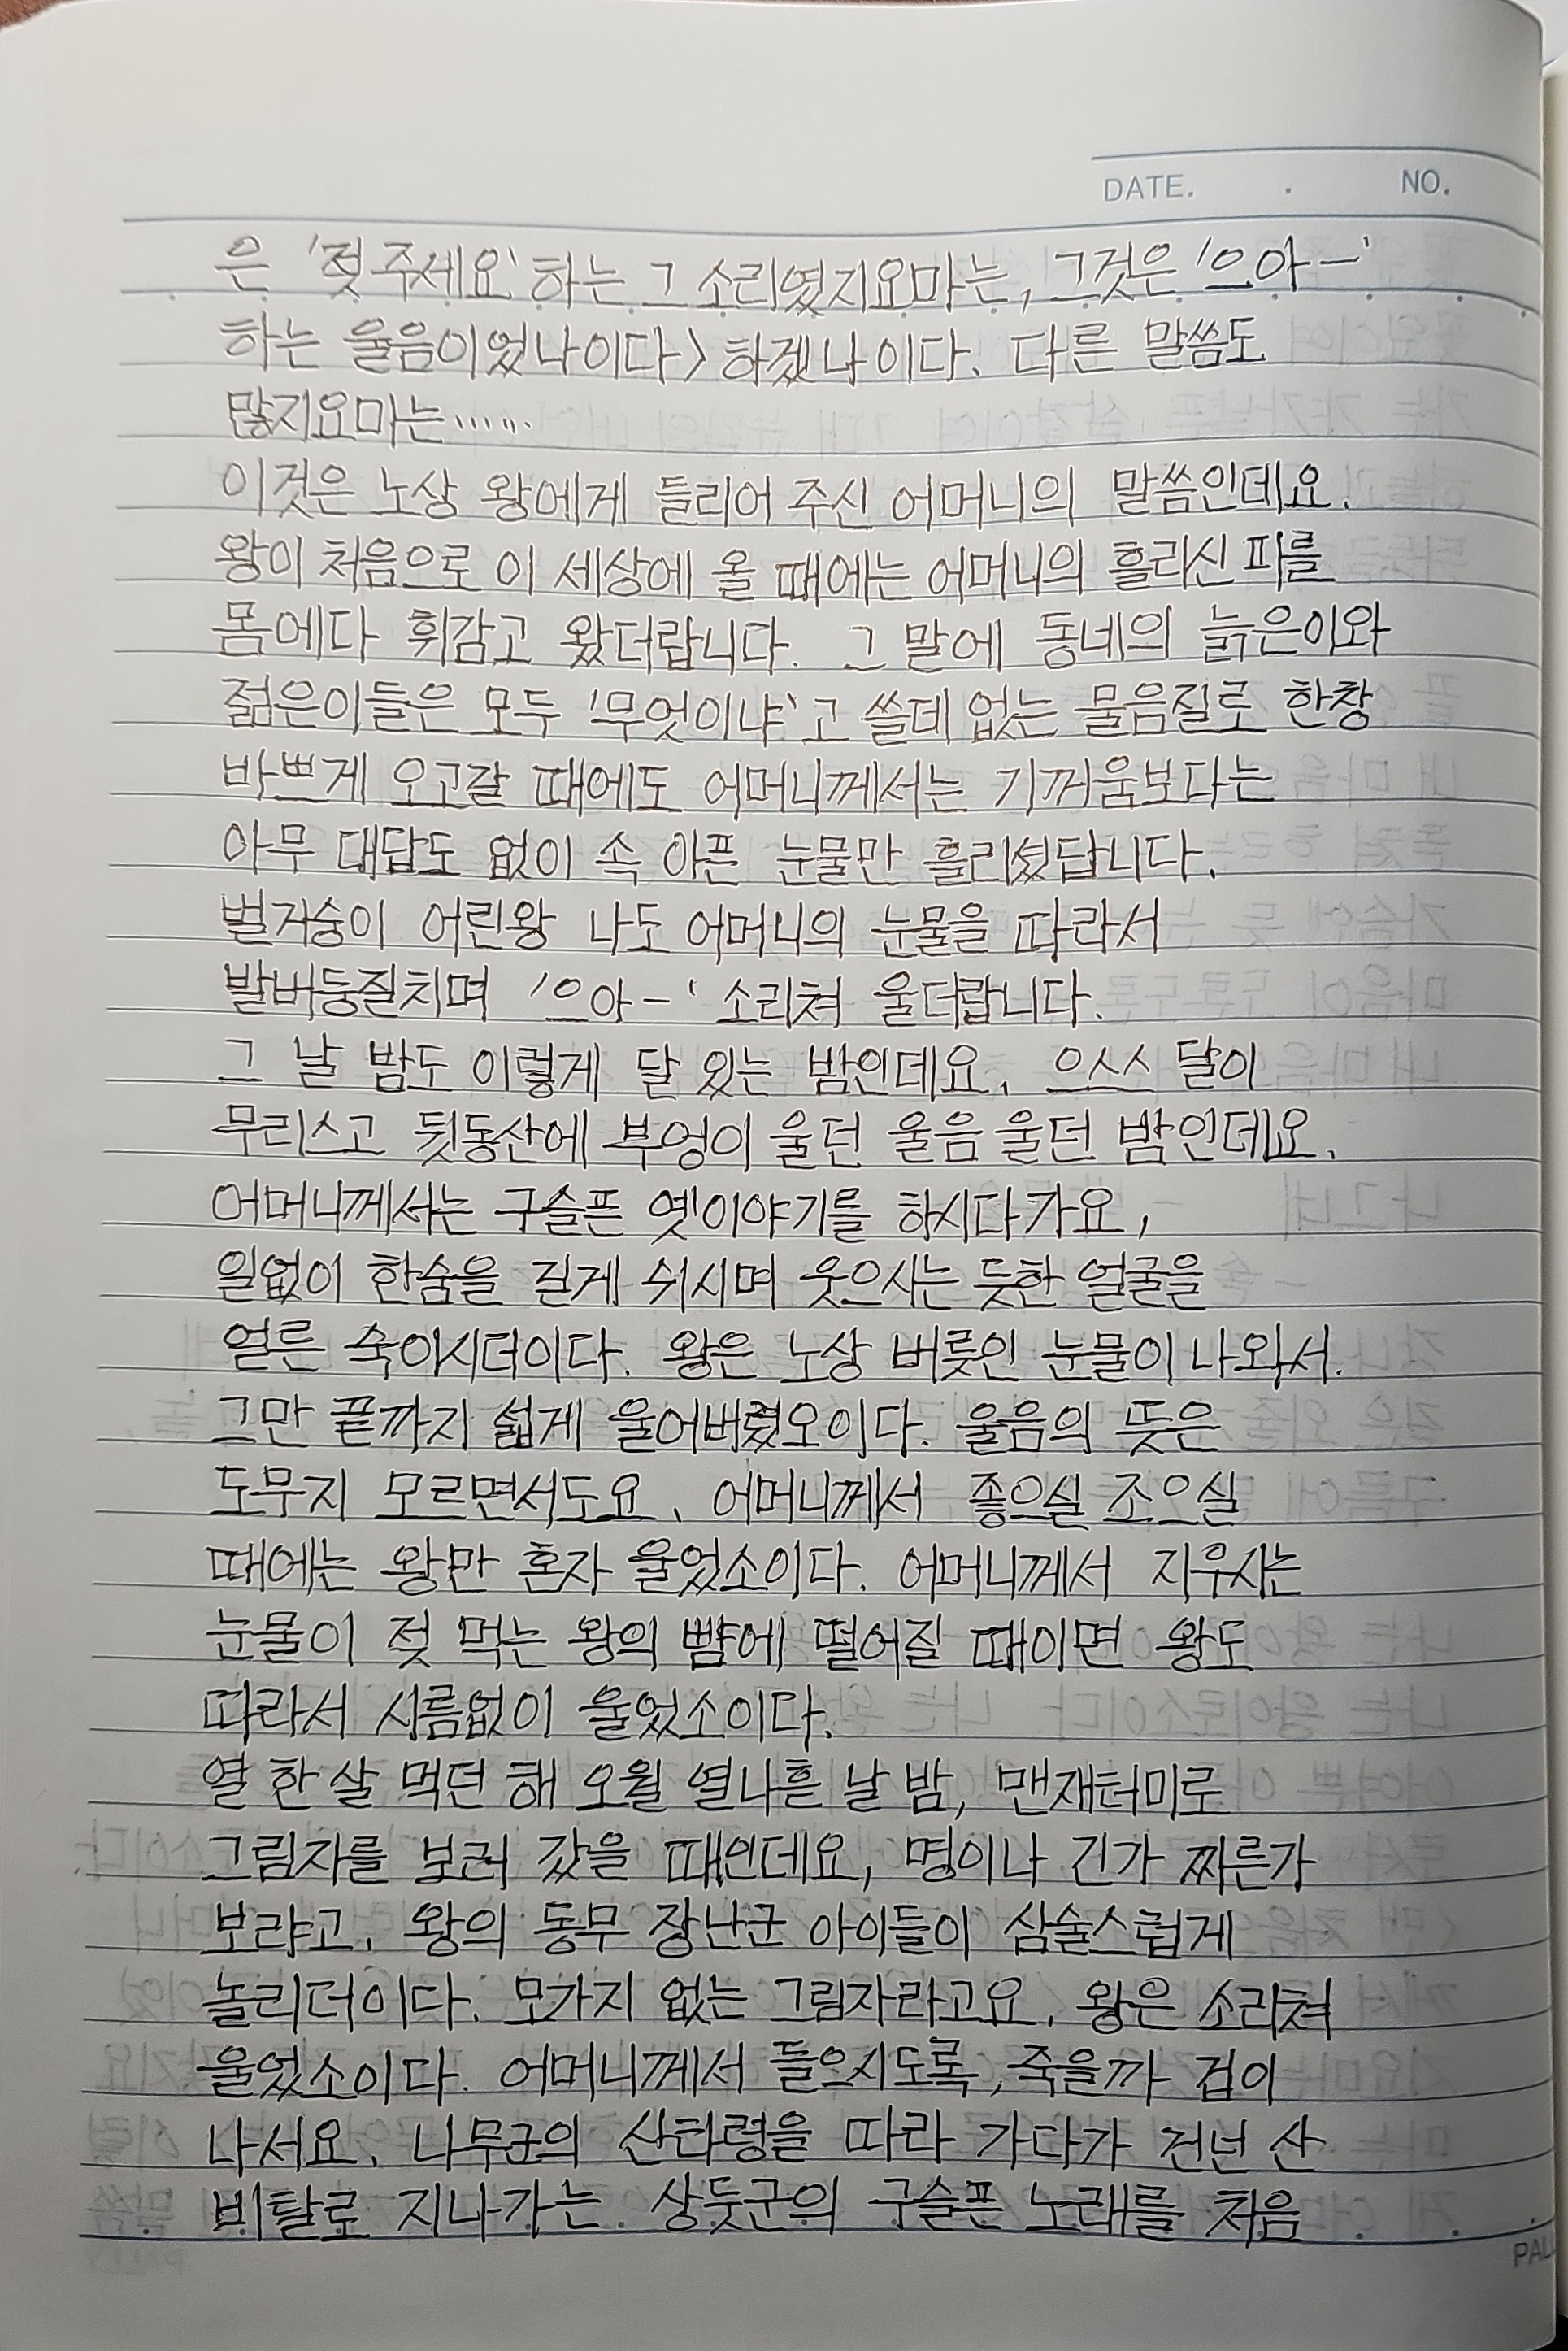 DATE. . NO.
은 '젖 주세요' 하는 그 소리였지요마는, 그것은 '으아—'
하는 울음이었나이다> 하겠나이다. 다른 말씀도
많지요마는……
이것은 노상 왕에게 들리어 주신 어머니의 말씀인데요.
왕이 처음으로 이 세상에 올 때에는 어머니의 흘리신 피를
몸에다 휘감고 왔더랍니다. 그 말에 동네의 늙은이와
젊은이들은 모두 '무엇이냐'고 쓸데 없는 물음질로 한창
바쁘게 오고갈 때에도 어머니께서는 기꺼움보다는
아무 대답도 없이 속 아픈 눈물만 흘리셨답니다.
벌거숭이 어린왕 나도 어머니의 눈물을 따라서
발버둥질치며 '으아—' 소리쳐 울더랍니다.
그 날 밤도 이렇게 달 있는 밤인데요, 으스스 달이
무리스고 뒷동산에 부엉이 울던 울음 울던 밤인데요.
어머니께서는 구슬픈 옛이야기를 하시다가요,
일없이 한숨을 길게 쉬시며 웃으사는 듯한 얼굴을
얼른 숙이시더이다. 왕은 노상 버릇인 눈물이 나와서.
그만 끝까지 섧게 울어버렸오이다. 울음의 뜻은
도무지 모르면서도요. 어머니께서 좋으실 조으실
때에는 왕만 혼자 울었소이다. 어머니께서 지우사는
눈물이 젖 먹는 왕의 뺨에 떨어질 때이면 왕도
따라서 시름없이 울었소이다.
열 한 살 먹던 해 오월 열나흗 날 밤, 맨재터미로
그림자를 보러 갔을 때인데요, 명이나 긴가 짜른가
보랴고. 왕의 동무 장난군 아이들이 심술스럽게
놀리더이다. 모가지 없는 그림자라고요. 왕은 소리쳐
울었소이다. 어머니께서 들으시도록, 죽을까 겁이
나서요. 나무군의 산타령을 따라 가다가 건넌 산
비탈로 지나가는 상둣군의 구슬픈 노래를 처음